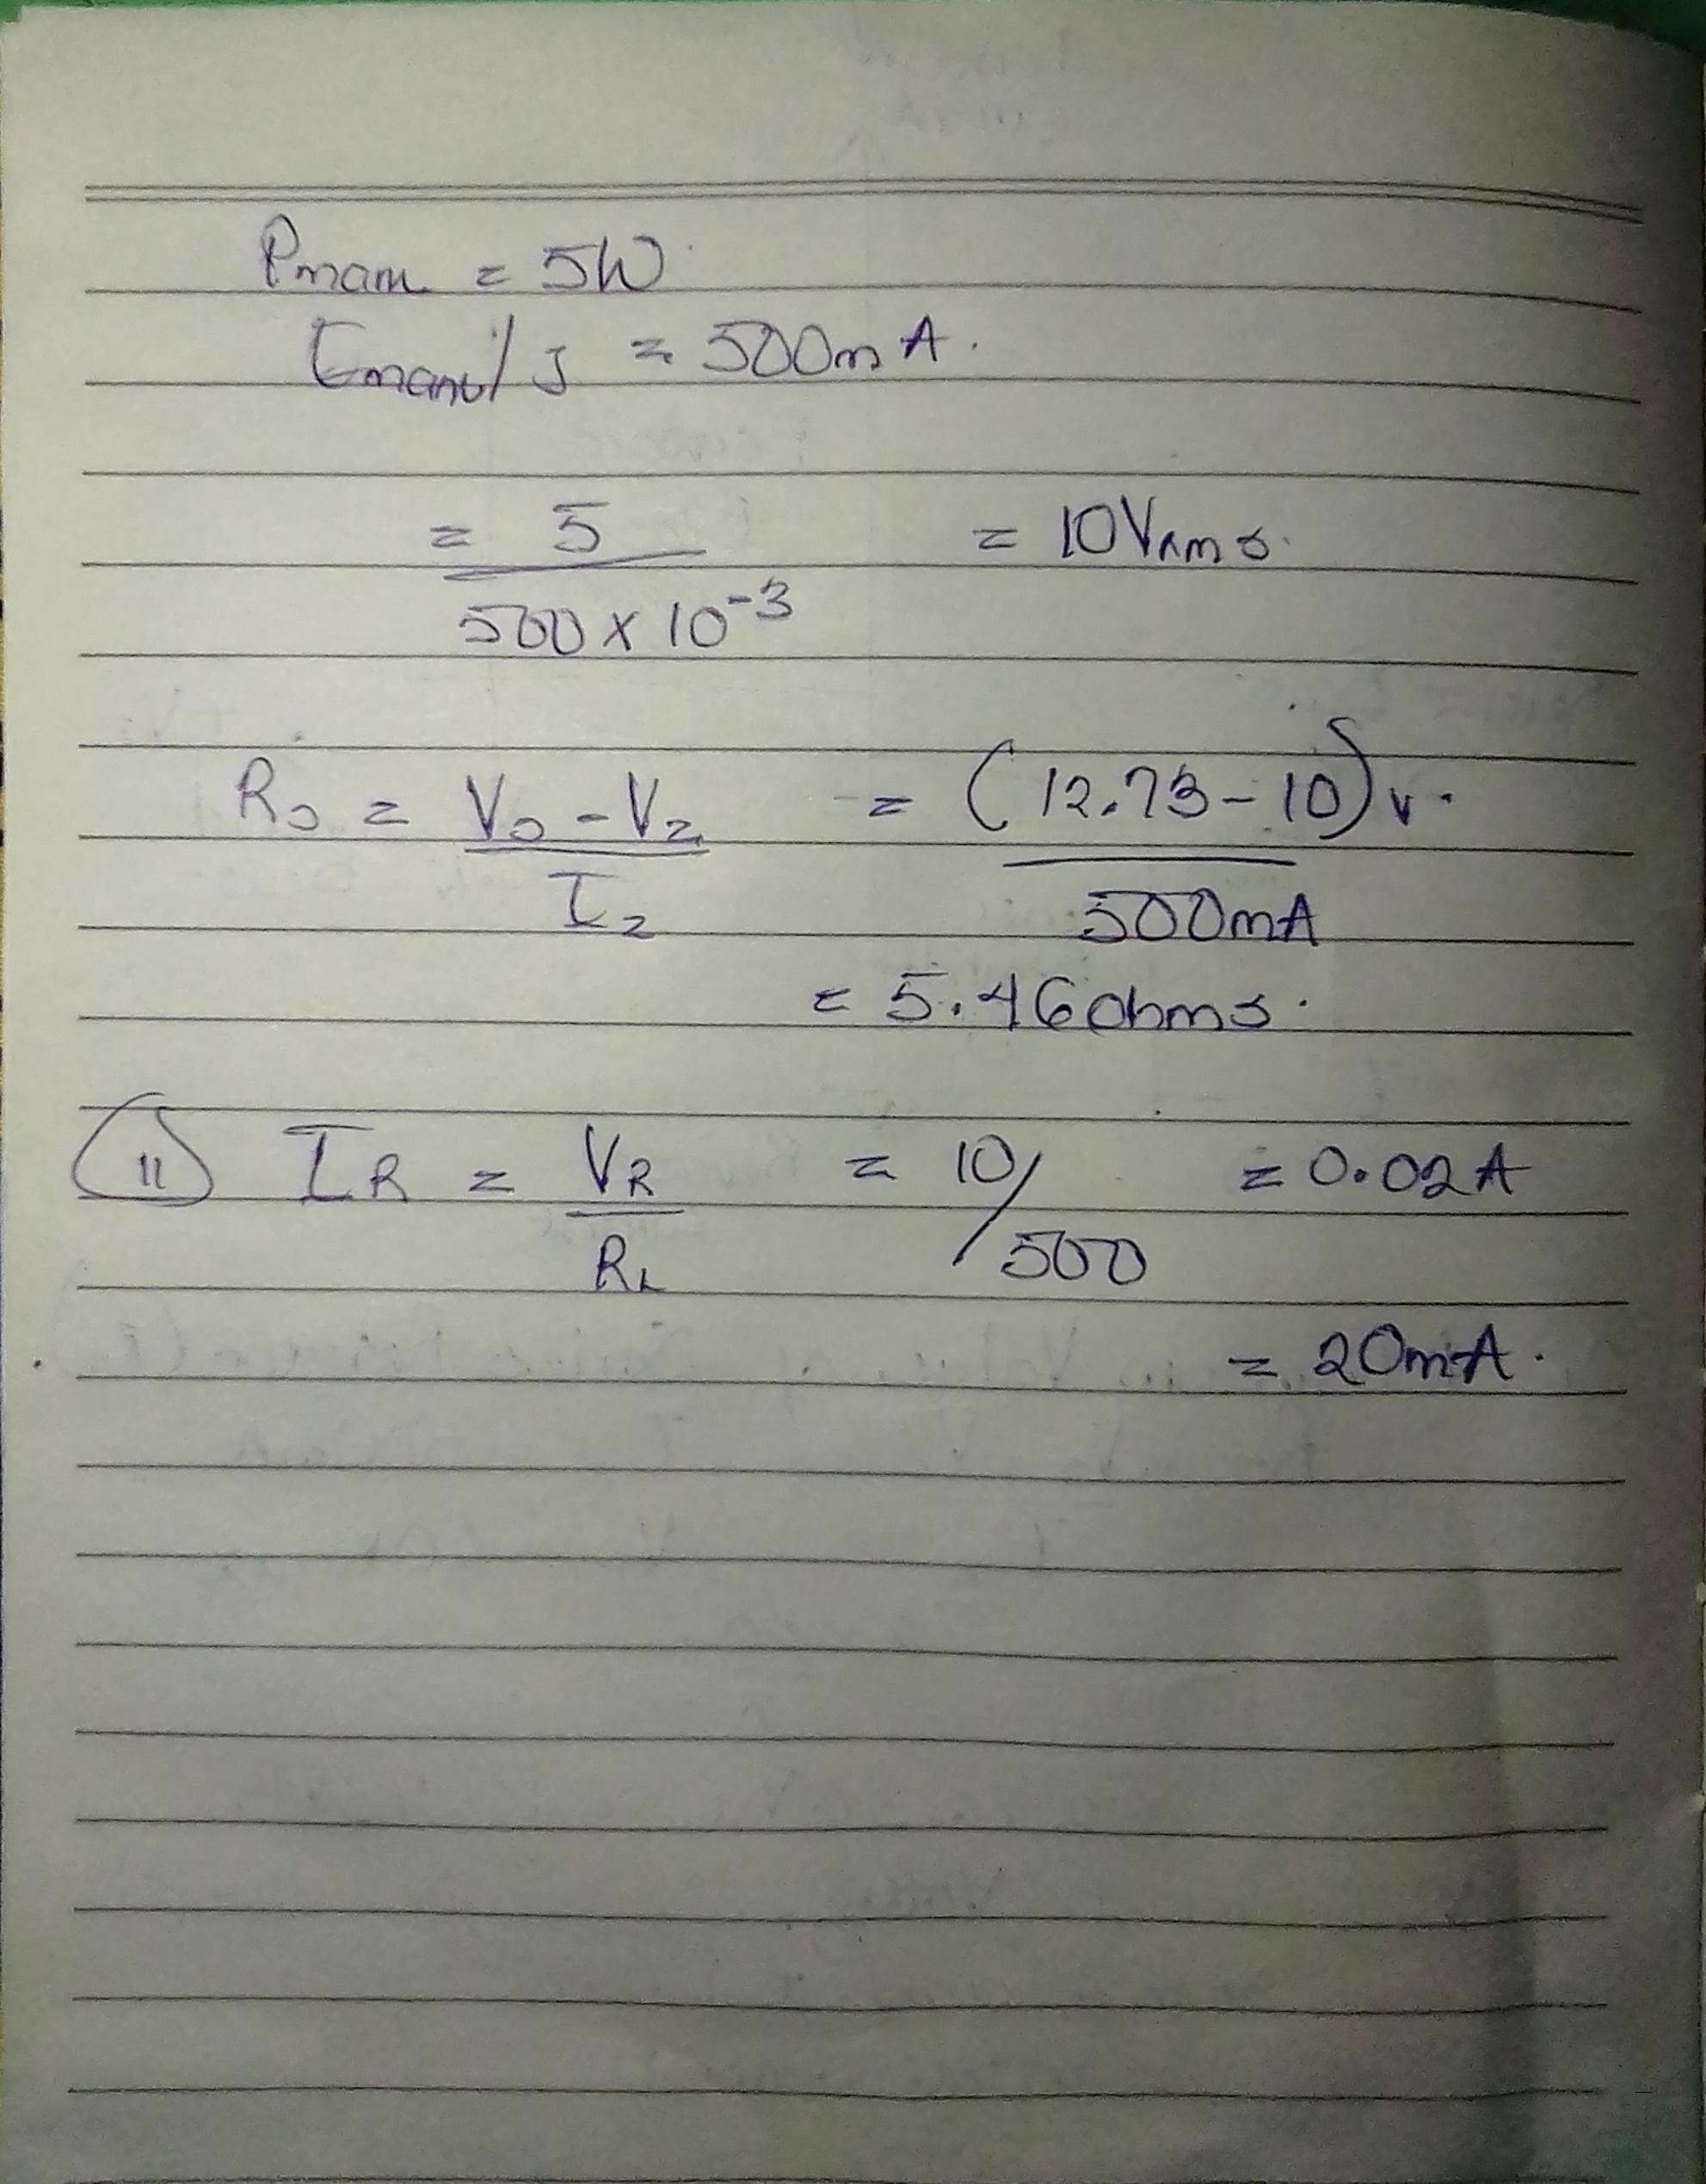 Pmam = 5W
= 500mA.
= 5 / 500 x 10^-3 = 10Vrms.
Rs = Vs - Vz / Iz = (12.73 - 10)v. / 500mA
= 5.46ohms.
(11) IR = VR / RL = 10/500 = 0.02A
= 20mA.